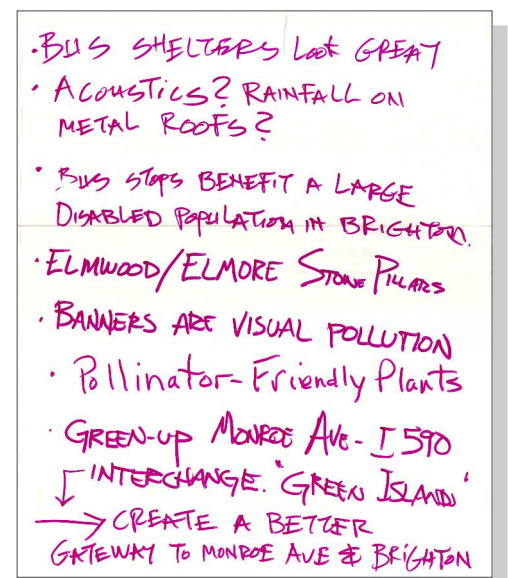 • BUS SHELTERS Look GREAT
• ACOUSTICS? RAINFALL ON
METAL ROOFS?
• BUS STOPS BENEFIT A LARGE
DISABLED POPULATION IN BRIGHTON.
• ELMWOOD/ELMORE STONE PILLARS
• BANNERS ARE VISUAL POLLUTION
• Pollinator-Friendly Plants
• GREEN-UP MONROE AVE - I 590
INTERCHANGE. "GREEN ISLAND"
→ CREATE A BETTER
GATEWAY TO MONROE AVE & BRIGHTON